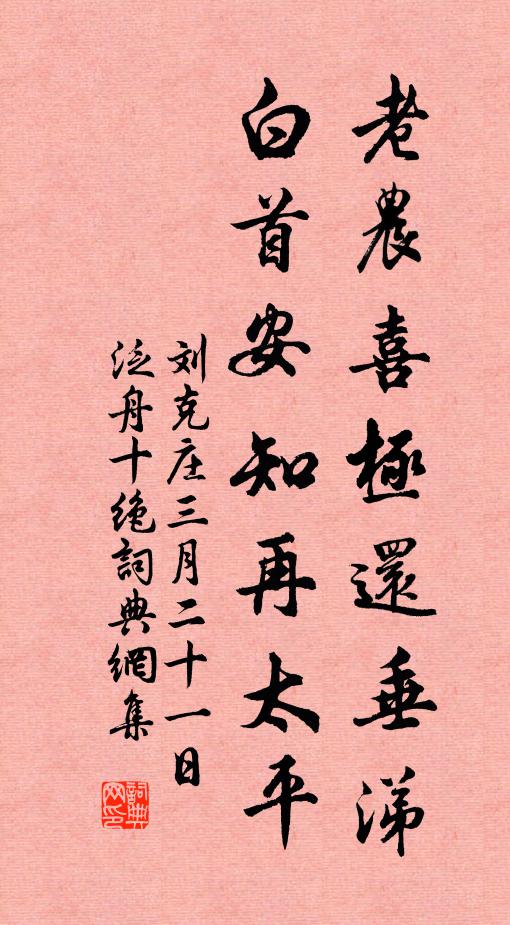 老農喜極還垂涕
白首安知再太平
刘克庄三月二十一日
泛舟十绝詞典網集
詞典网印